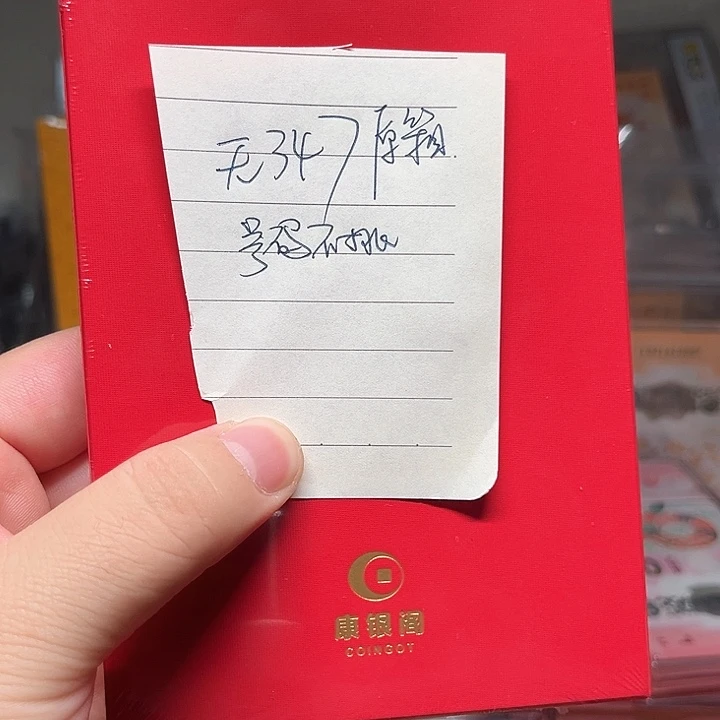 无347原箱
号码不挑
康银阁
COINGOT